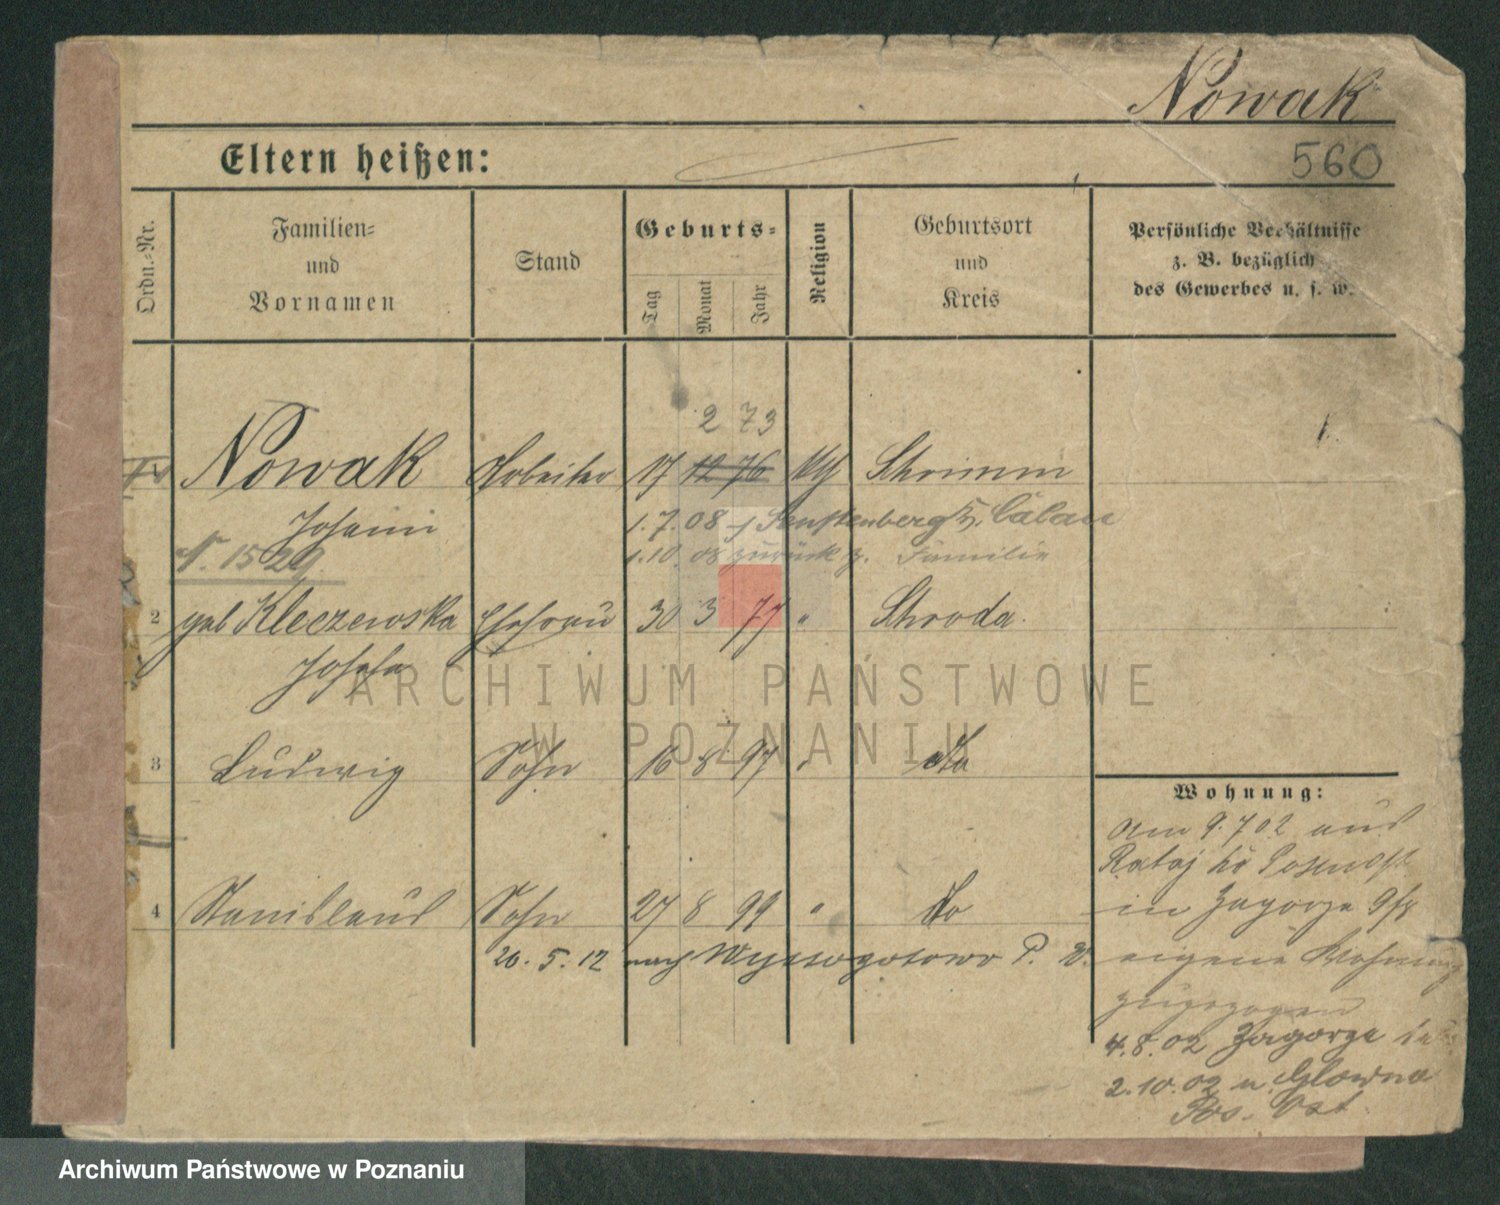 Nowak
Eltern heißen:
560
Ordn.-Nr.
Familien-
und
Vornamen
Stand
Geburts-
Tag
Monat
Jahr
Religion
Geburtsort
und
Kreis
Persönliche Verhältnisse
z. B. bezüglich
des Gewerbes u. s. w.
2 73
Nowak Arbeiter 17 12 76 Schrimm
1.7.08 Senftenberg Calau
15 29
1.10.08 zurück z. Familie
2 geb Kleczewska Ehefrau 30 3 77 " Schroda.
Josefa
ARCHIWUM PAŃSTWOWE
W POZNANIU
3 Ludwig Sohn 16 8 97 " do
Wohnung:
am 9.7 02 aus
Rataj
4 Stanislaus Sohn 27 8 99 " do
in Zagorze 9
20. 5. 12 nach Wyssogotowo P. W.
eigene Wohnung
zugezogen
4.8.02 Zagorze
2.10.02 n. Glowno
Pos. Ost.
Archiwum Państwowe w Poznaniu